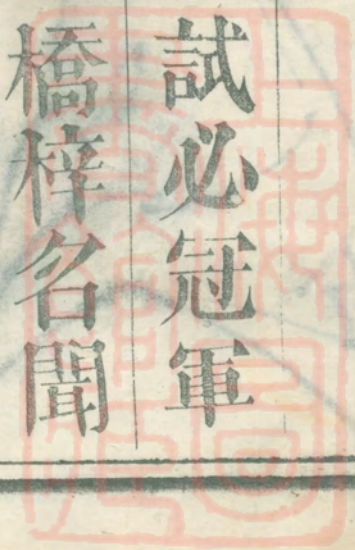 試必冠軍
橋梓名聞